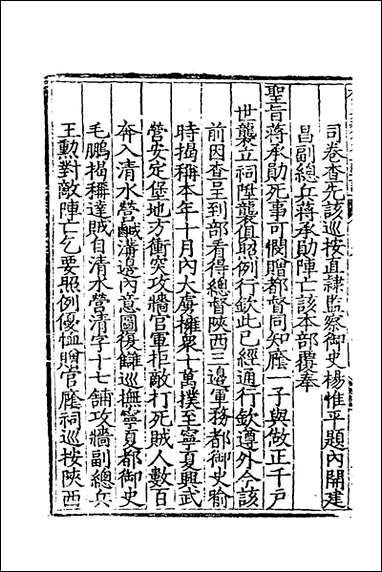 司卷查先該巡按直隸監察御史楊惟平題內開建
昌副總兵蔣承勛陣亡該本部覆奉
聖旨蔣承勛死事可憫贈都督同知廕一子與做正千戶
世襲立祠陞襲值照例行欽此已經通行欽遵外今該
前因查呈到部看得總督陝西三邊軍務都御史喻
時揭稱本年十月內大虜擁衆十萬撲至寧夏興武
營安定堡地方衝突攻牆官軍拒敵打死賊人數百
奔入清水營鹹溝邊內意圖復讎巡撫寧夏都御史
毛鵬揭稱達賊自清水營清字十七舖攻牆副總兵
王勲對敵陣亡乞要照例優恤贈官廕祠巡按陝西